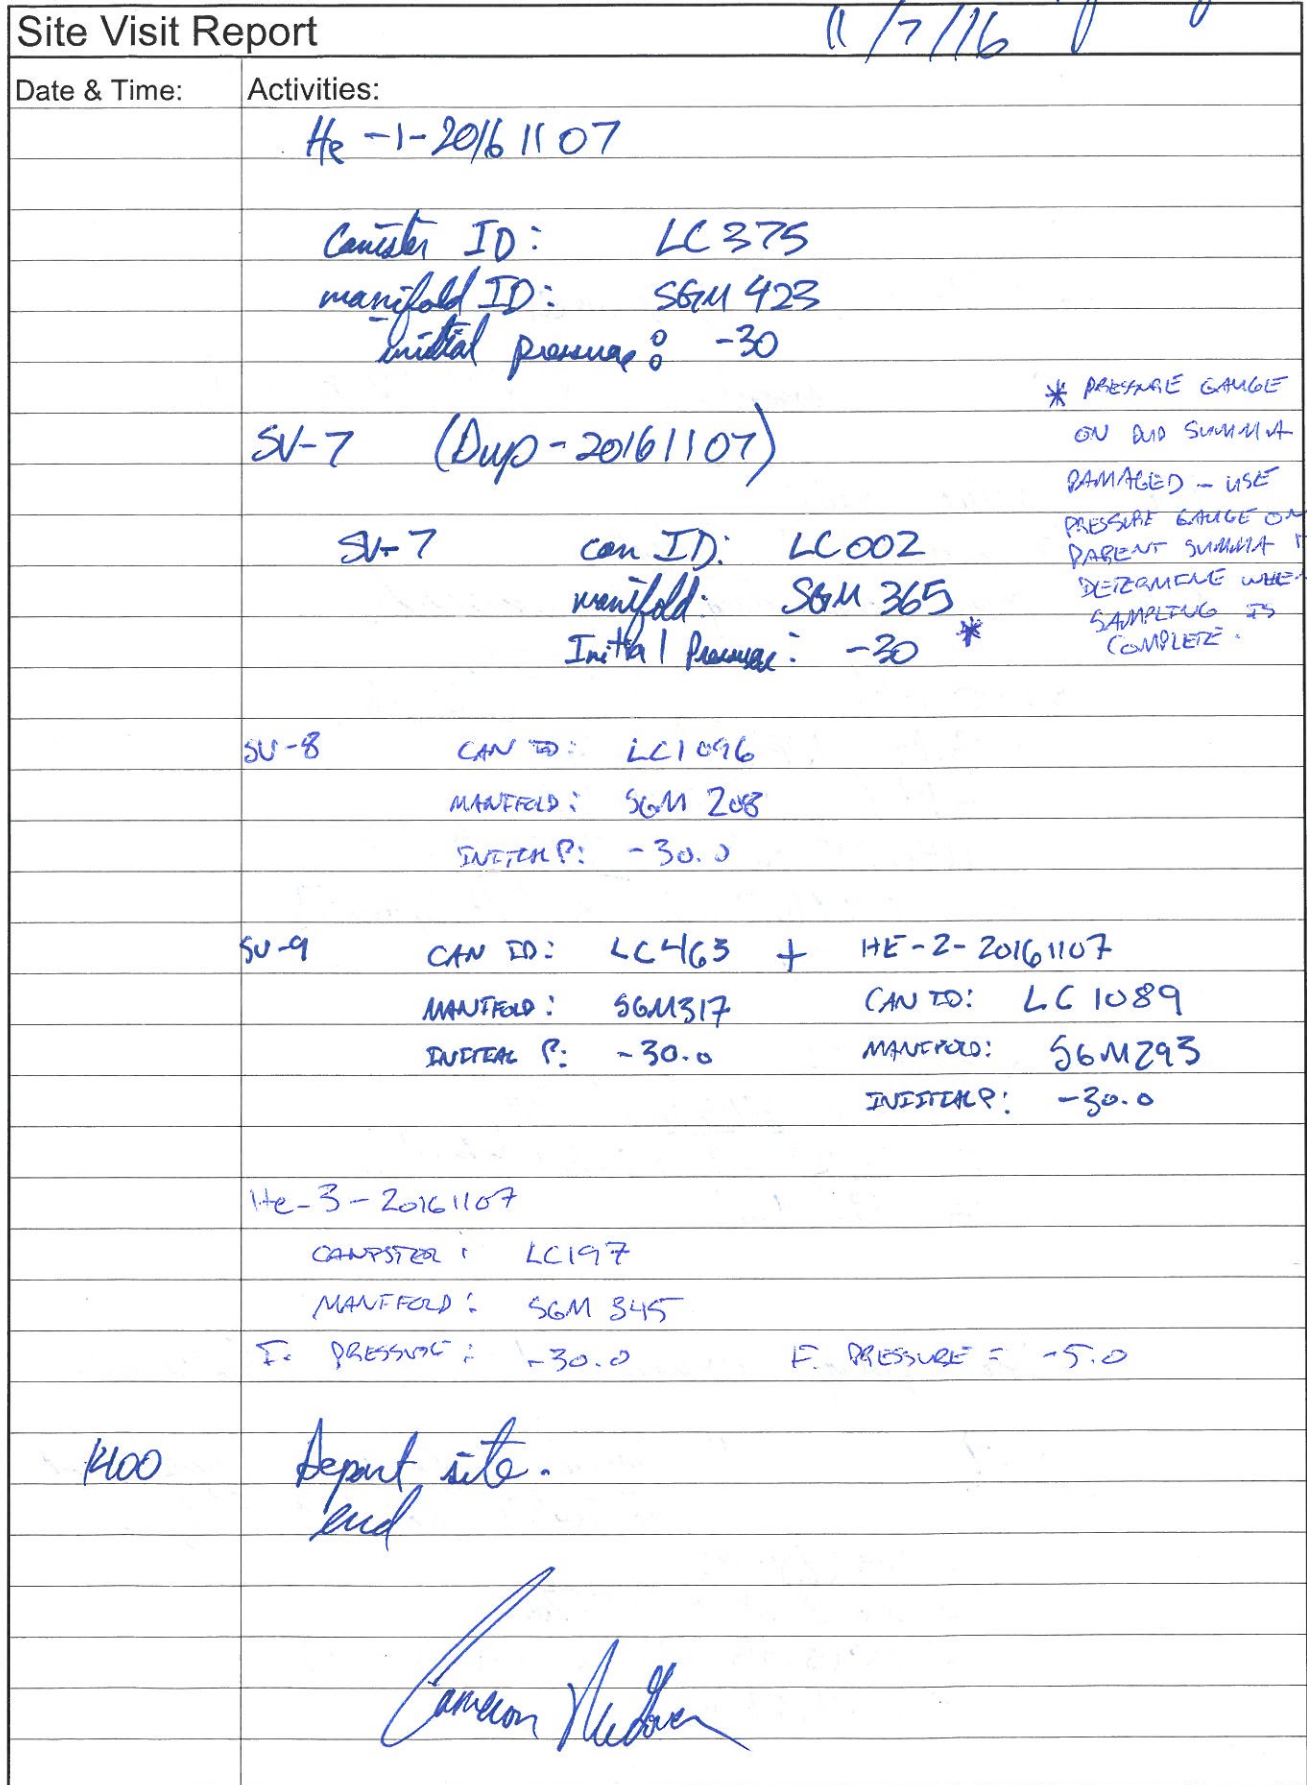 Site Visit Report
11/7/16
Date & Time: Activities:
He-1-20161107
Canister ID: LC375
manifold ID: SGM 423
initial pressure: -30
SV-7 (Dup-20161107)
SV-7 can ID: LC002
manifold: SGM 365
Initial Pressure: -30 *
* PRESSURE GAUGE
ON DUP SUMMA
DAMAGED - USE
PRESSURE GAUGE ON
PARENT SUMMA
DETERMINE WHEN
SAMPLING IS
COMPLETE.
SV-8 CAN ID: LC1096
MANIFOLD: SGM 208
INITIAL P: -30.0
SV-9 CAN ID: LC463 + HE-2-20161107
MANIFOLD: SGM317 CAN ID: LC 1089
INITIAL P: -30.0 MANIFOLD: SGM293
INITIAL P: -30.0
He-3-20161107
CANISTER: LC197
MANIFOLD: SGM 345
I. PRESSURE: -30.0 F. PRESSURE = -5.0
1400 Depart site.
end
Cameron